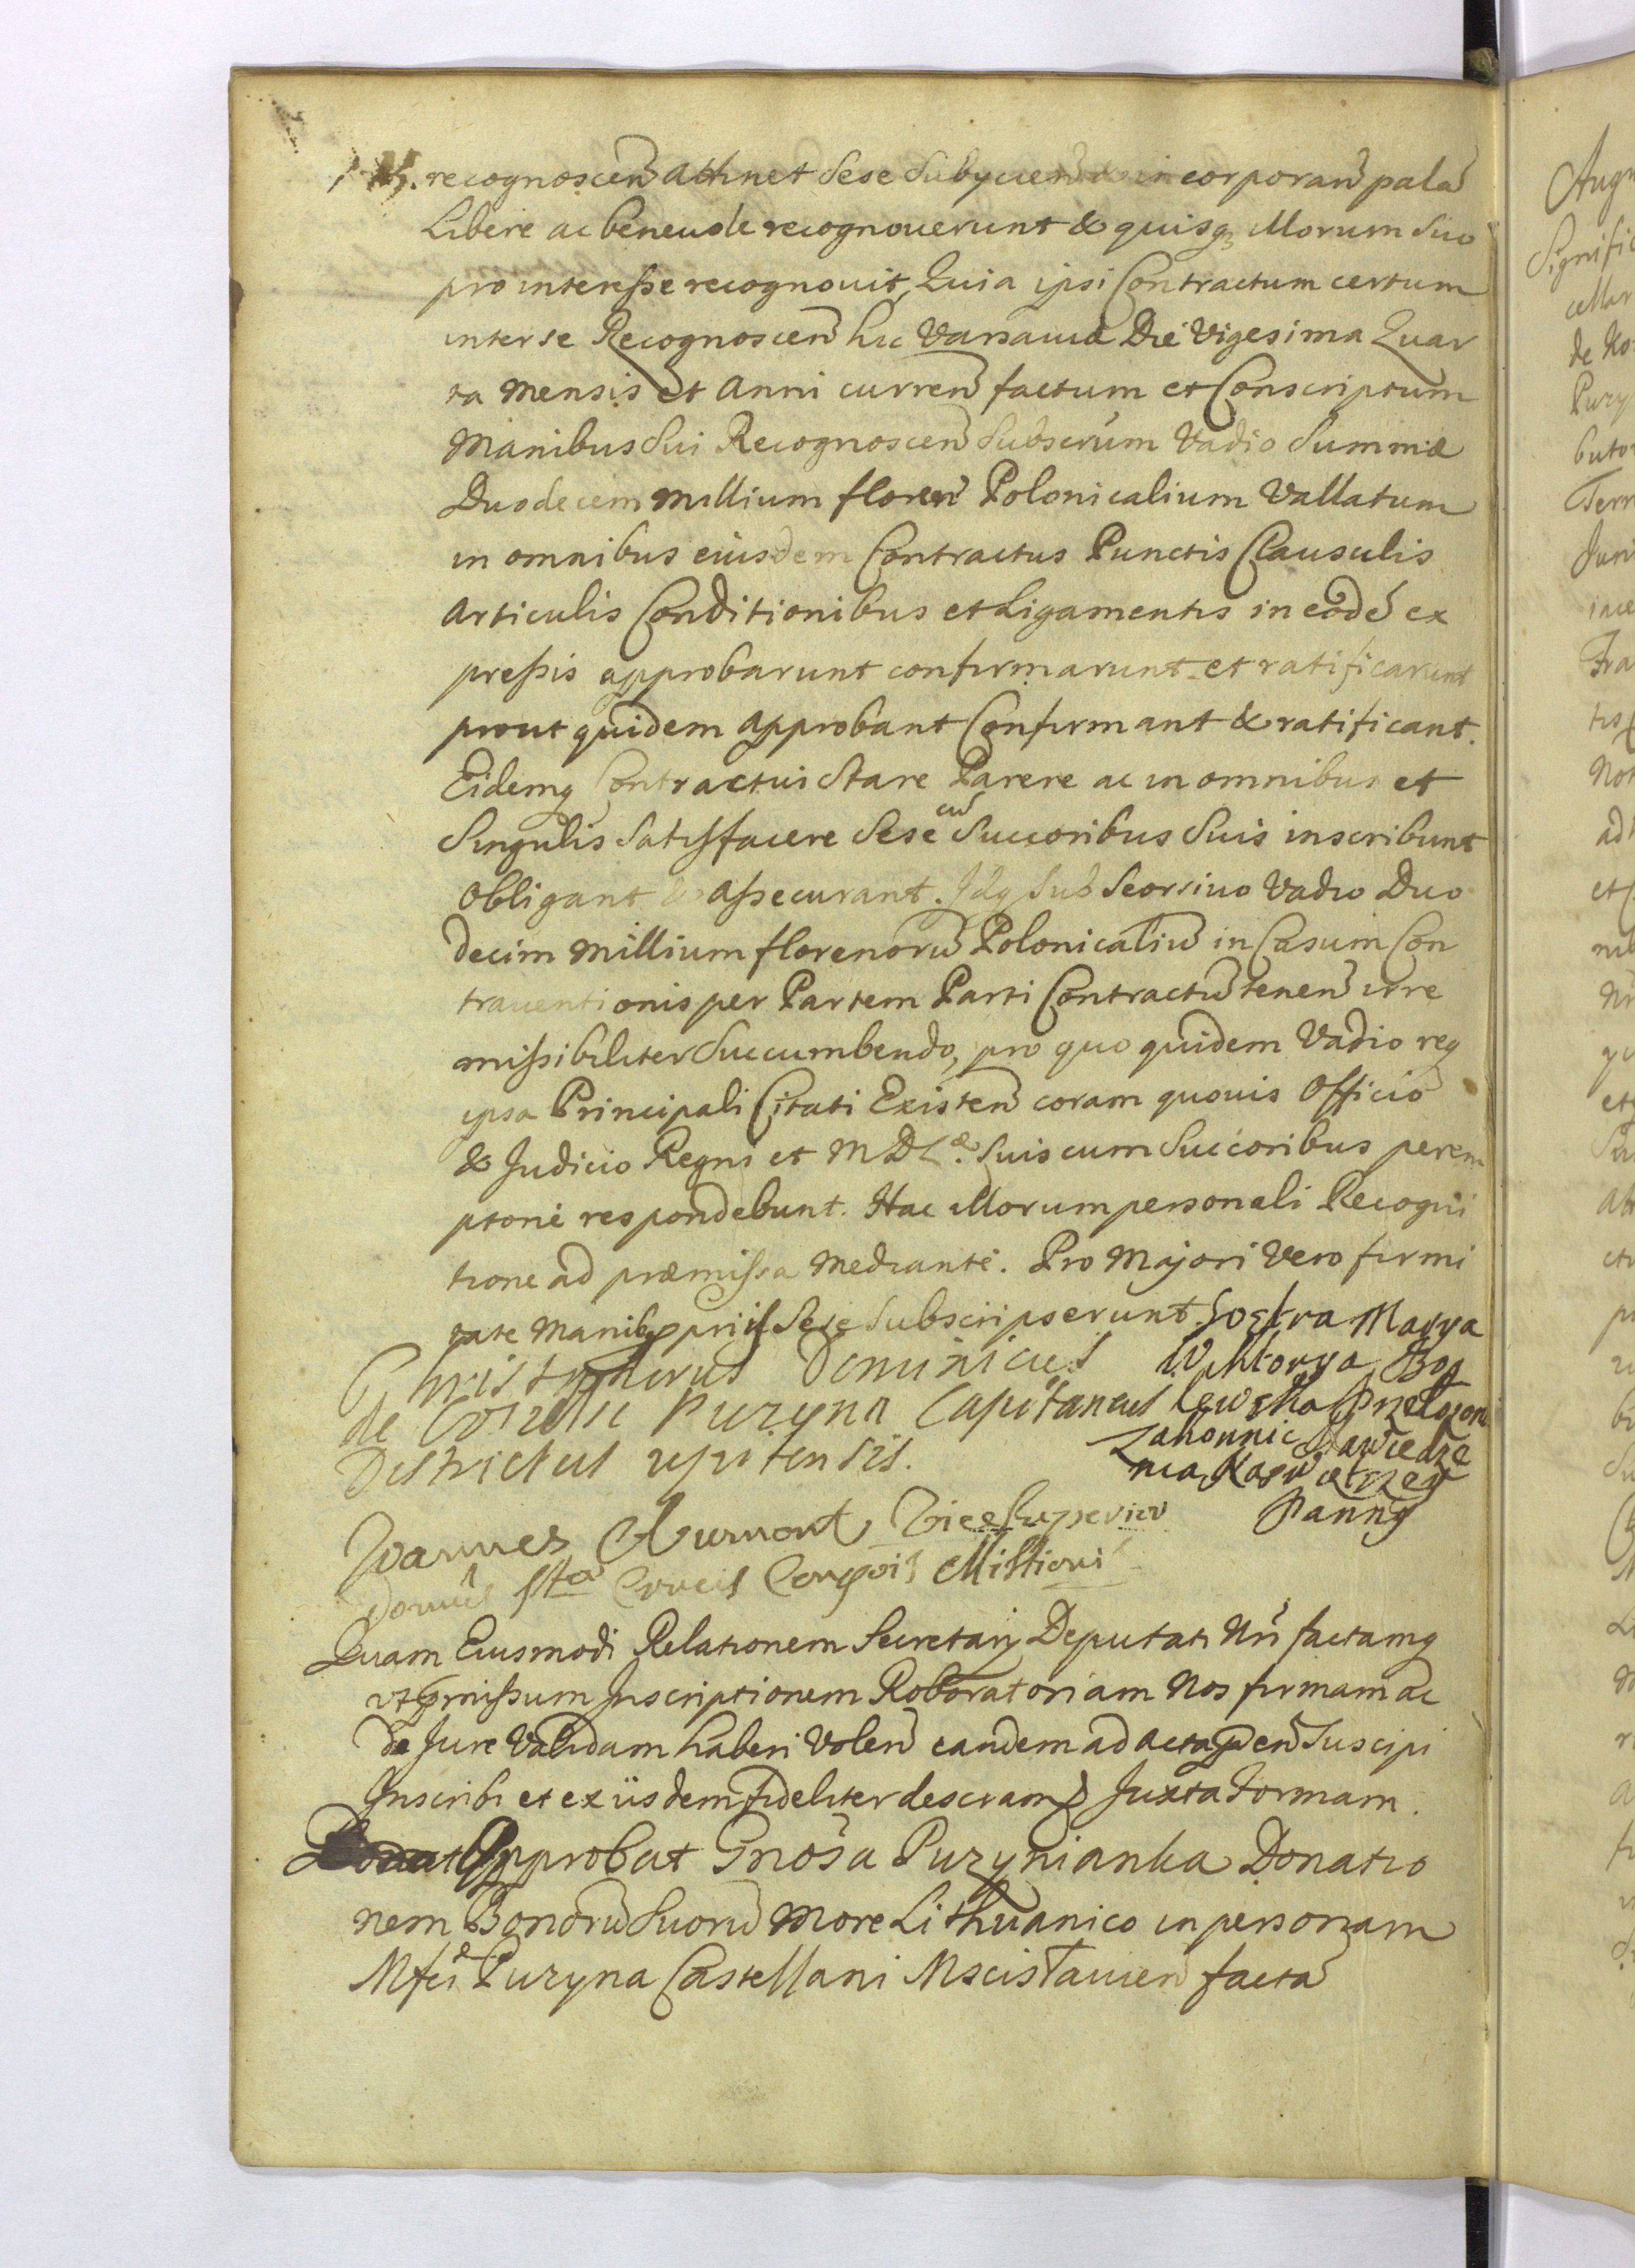 recognoscen attinet Sese Subyciendo & incorporan pala
Libere ac benevole recognoverunt & quisq Illorum Suo
pro interesse recognovit, Quia ipsi Contractum certum
inter se Recognoscen hic Varsaviæ Die Vigesima Quar
ta Mensis et Anni curren factum et Conscriptum
Manibus Sui Recognoscen Subscrum Vadio Summæ
Duodecem Millium floren Polonicalium Vallatum
in omnibus eiusdem Contractus Punctis Clausulis
Articulis Conditionibus et Ligamentis in eode ex
pressis approbarunt confirmarunt et ratificarunt
prout quidem approbant Confirmant & ratificant.
Eidemq Contractui Stare Parere ac in omnibus et
Singulis Satisfacere Sese cu Succoribus Suis inscribunt
Obligant & assecurant. Idq Sub Seorsivo Vadio Duo
decim Millium florenoru Polonicaliu in Casum Con
traventionis per Partem Parti Contractu tenen irre
missibiliter Succumbendo, pro quo quidem Vadio req
ipsa Principali Citati Existen coram quovis Officio
& Judicio Regni et M D L. Suis cum Succoribus perem
ptorie respondebunt. Hac Illorum personali Recogni
tione ad præmissa Mediante. Pro Majori Vero firmi
tate Manibq pprijs Sese Subscripserunt. Sostra Marya
Christophorus Dominicus Wiktorya Bog
de Kozielsk Puzyna Capitaneus lewska Przełozon
Districtus upitensis. Zakonnic Nawiedze
nia Naswietrzey
Panny
Joannes Aumont Vice Superior
Domus Stæ Crucis Congois Missionis
Quam Eiusmodi Relationem Secretarij Deputati Nri factamq
ut pmissum Inscriptionem Roboratoriam Nos firmam ac
de Jure Validam haberi Volen eandem ad acta pden Suscipi
Inscribi et ex iisdem fideliter descram Juxta Formam.
Approbat Gnosa Puzynianka Donatio
nem Bonoru Suoru More Lithuanico in personam
Mfci Puzyna Castellani Mscislavien facta